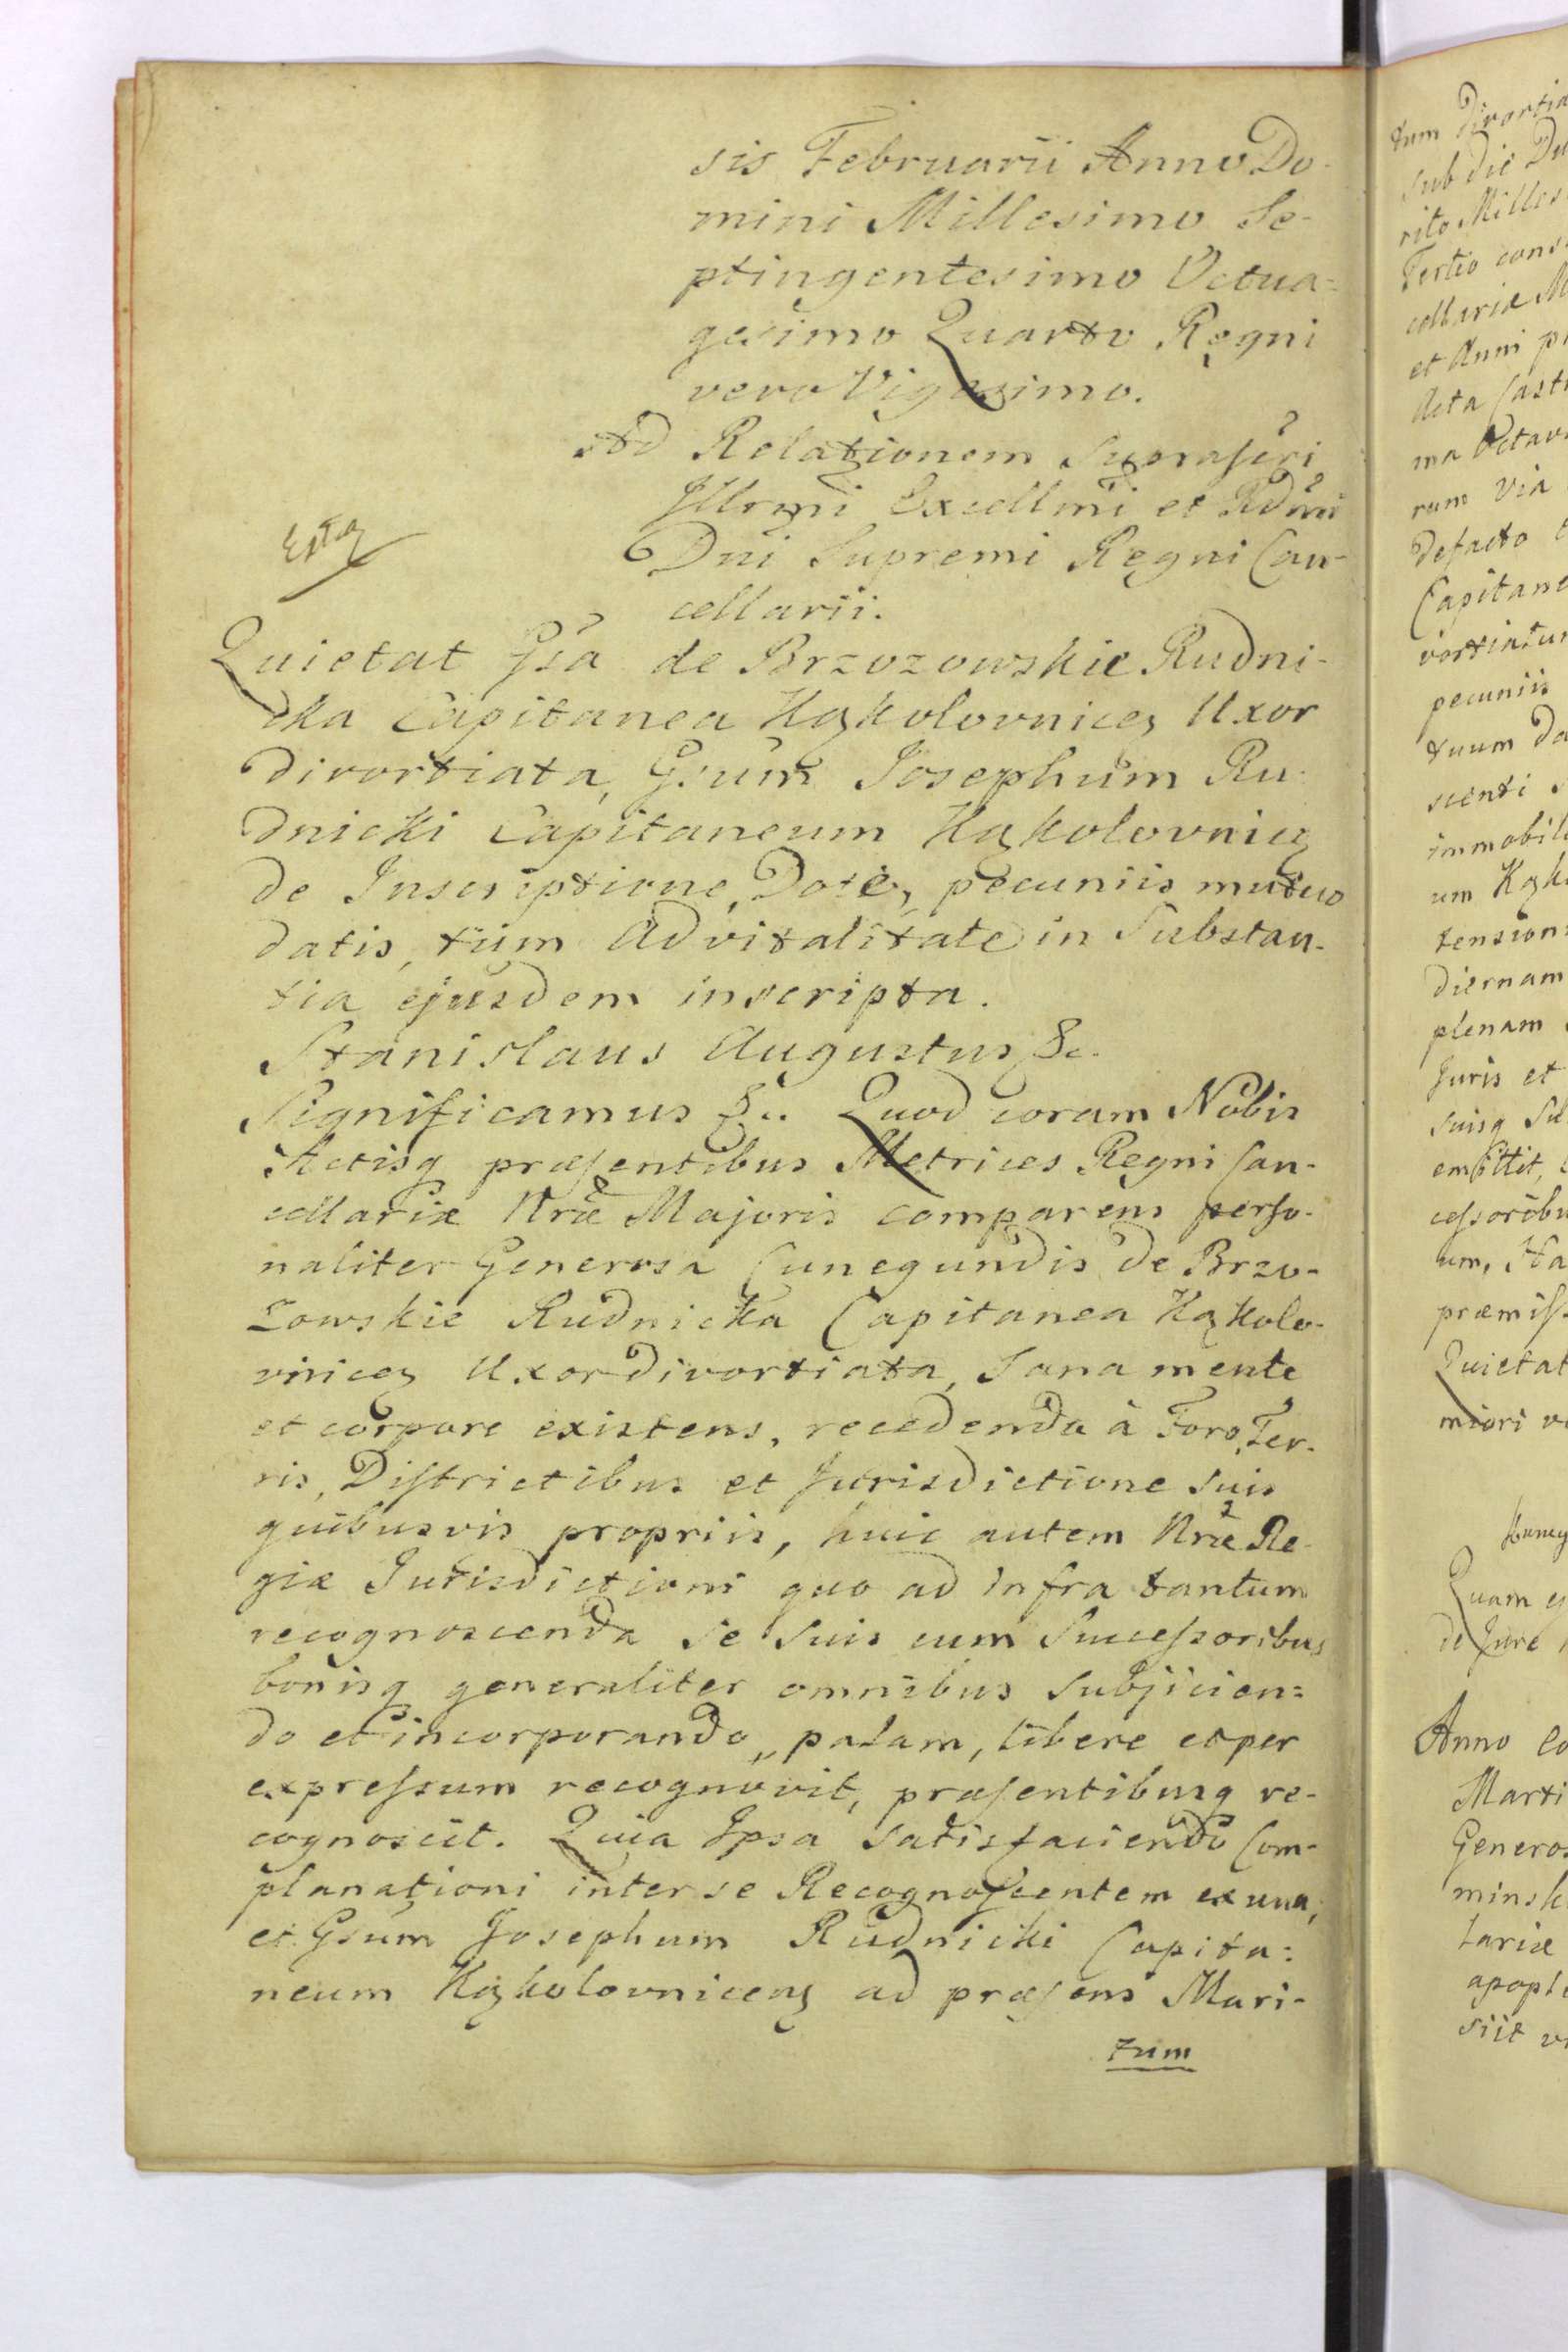 sis Februarii Anno Do-
mini Millesimo Se-
ptingentesimo Octua=
gesimo Quarto Regni
vero Vigesimo.
Ad Relationem Suprascri
Illrmi Excellmi et Rdmi
Dni Supremi Regni Can-
cellarii.
Quietat Gsa de Brzozowskie Rudni-
cka Capitanea Kąkolovnicen Uxor
divortiata, Gsum Josephum Ru-
dnicki Capitaneum Kąkolovnicen
de Inscriptione, Dote, pecuniis mutuo
datis, tum Advitalitate in Substan-
tia ejusdem inscripta.
Stanislaus Augustus &c.
Significamus &c. Quod coram Nobis
Actisq præsentibus Metrices Regni Can-
cellariæ Nræ Majoris comparens perso-
naliter Generosa Cunegundis de Brzo-
zowskie Rudnicka Capitanea Kąkolo-
vnicen Uxor divortiata, Sana mente
et corpore existens, recedendo à Foro, Ter-
ris, Districtibus et Jurisdictione suis
quibusvis propriis, huic autem Nræ Re-
giæ Jurisdictioni quo ad infra tantum
recognoscenda se suis cum Successoribus
bonisq generaliter omnibus subjicien=
do et incorporando, palam, libere et per
expressum recognovit, præsentibusq re-
cognoscit. Quia Ipsa satisfaciendo Com-
planationi inter se Recognoscentem ex una,
et Gsum Josephum Rudnicki Capita=
neum Kąkolovnicens ad præsens Mari-
tum
tum divortia
sub die Du
rito Milles
Tertio cons
cellariæ M
et Anni pr
Acta Cast
ma Octav
rum via
defacto
Capitane
vortiatu
pecuniis
tuum da
scenti
immobil
um Kąk
tension
diernam
plenam
Juris et
suisq Su
emittit,
cessoribu
um,
præmiss
Quietat
miori v
Quam
de Jure
Anno
Marti
Generos
minsk
tariæ
apopl
siit